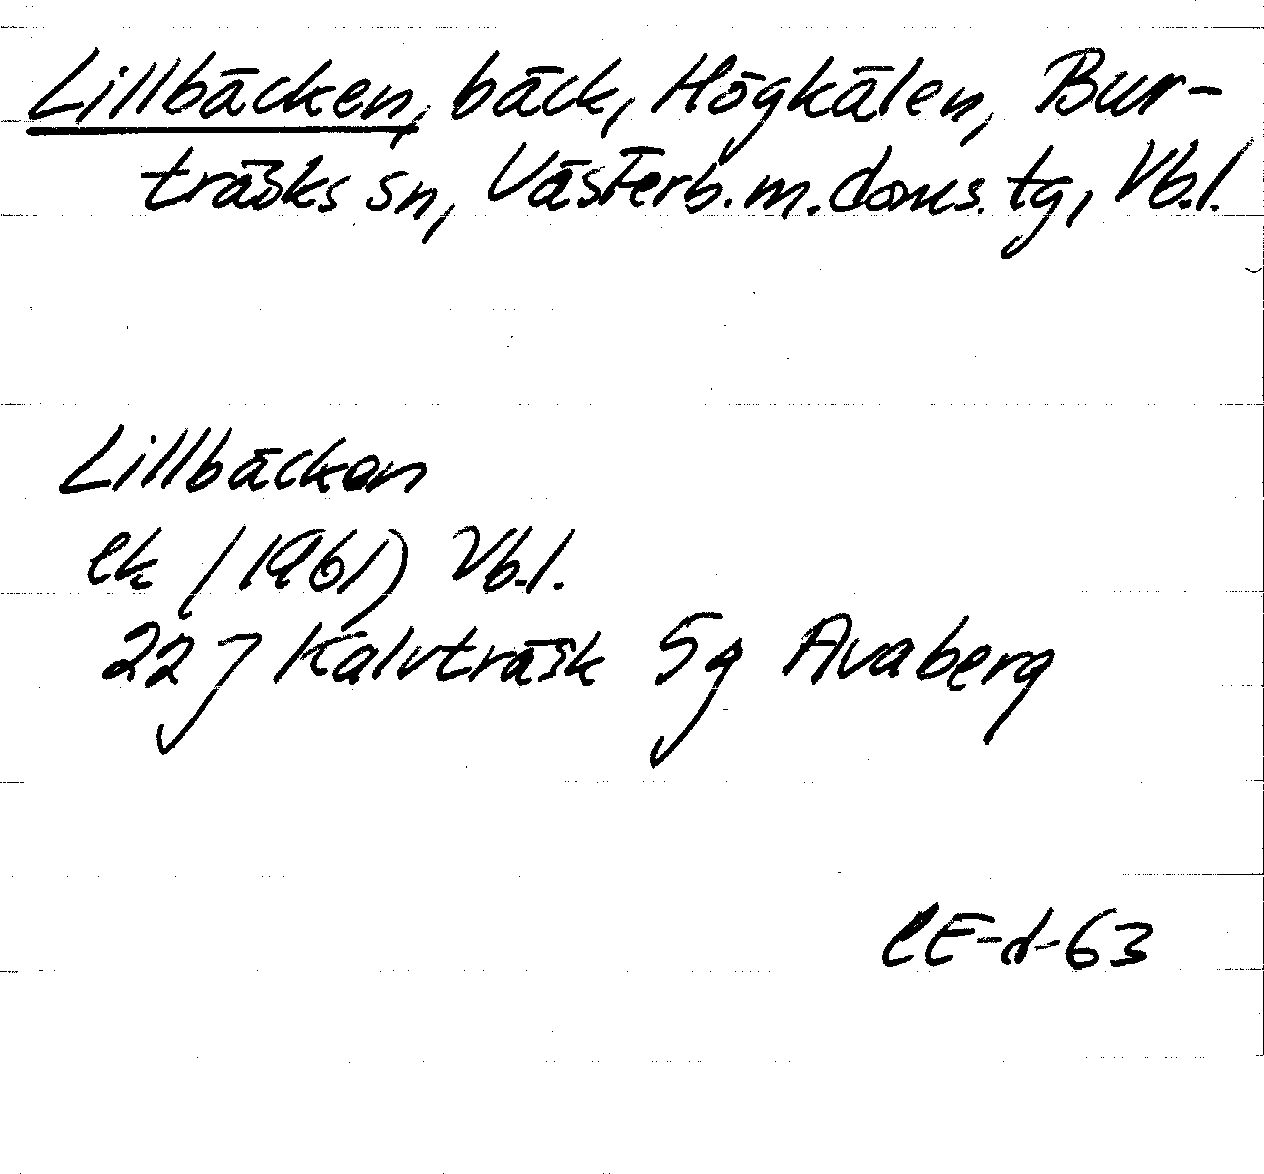 Lillbäcken, bäck, Högkälen, Bur-
träsks sn, Västerb. m. doms. tg, Vb.l.
Lillbäcken
ek (1961) Vb.l.
22 J Kalvträsk 5g Avaberg
CE-d-63